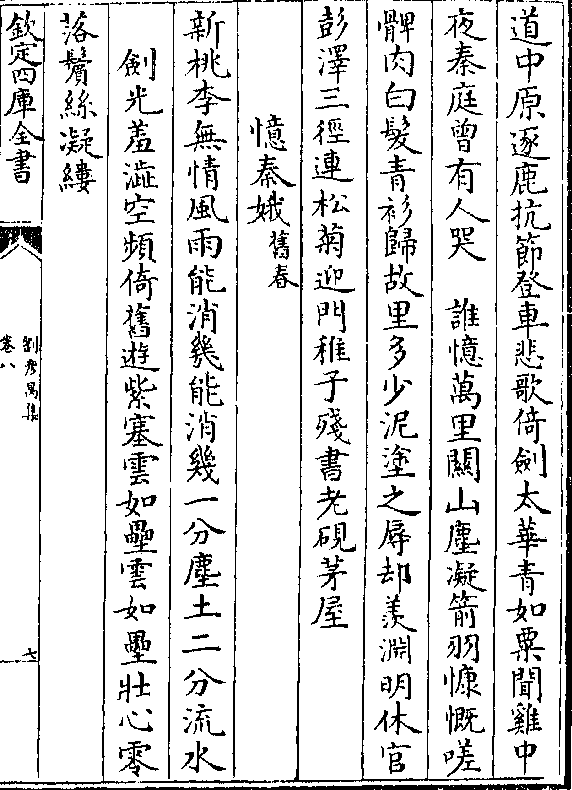 道中原逐鹿抗節登車悲歌倚劍太華青如粟聞雞中
夜秦庭曾有人哭　誰憶萬里關山塵凝箭羽慷慨嗟
髀肉白髮青衫歸故里多少泥塗之辱却羨淵明休官
彭澤三徑連松菊迎門稚子殘書老硯茅屋
憶秦娥舊春
新桃李無情風雨能消幾能消幾一分塵土二分流水
劍光羞澁空頻倚舊遊紫塞雲如壘雲如壘壯心零
落鬢絲凝縷
欽定四庫全書
劉彥昺集
卷八
七